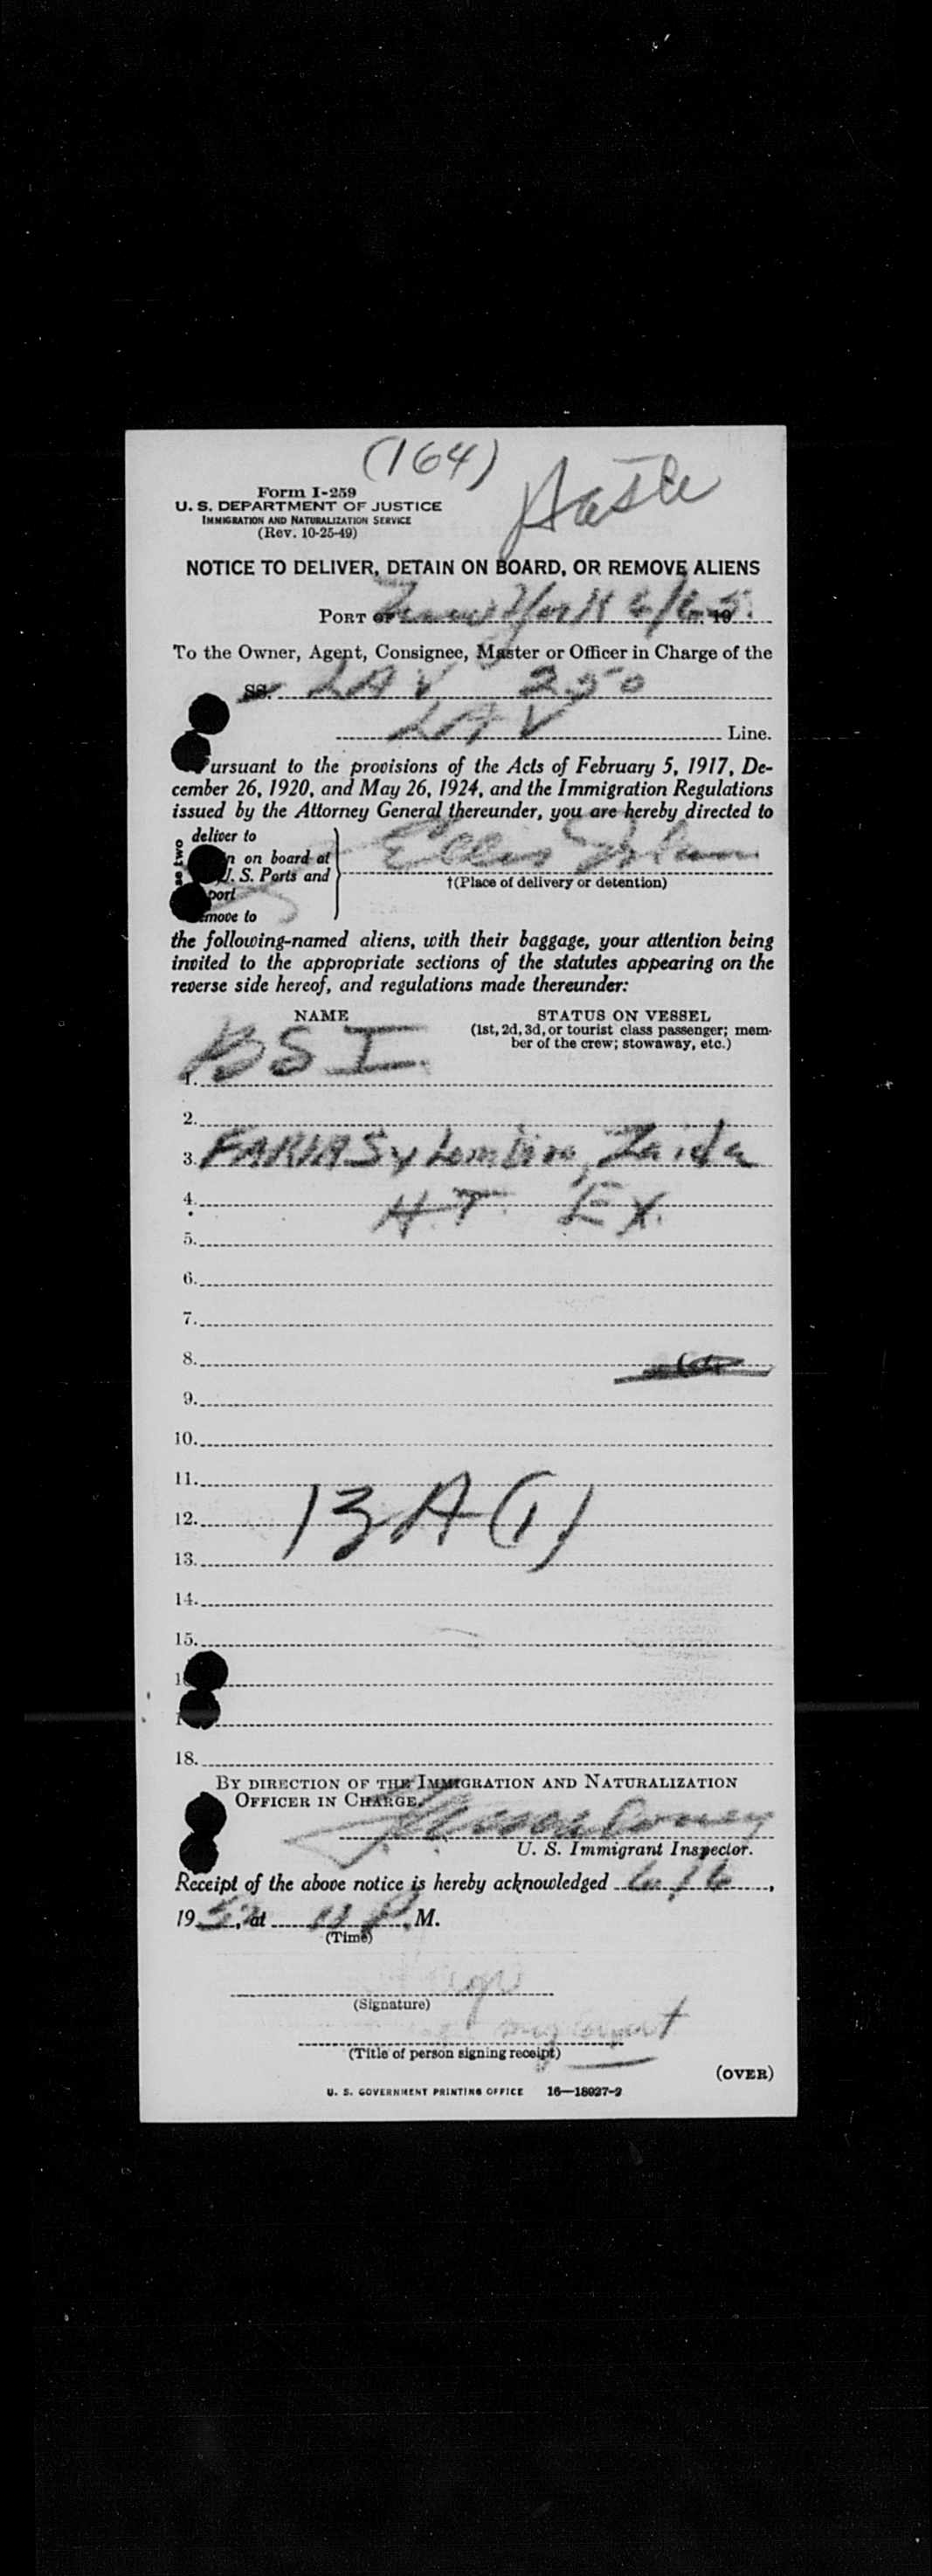 (164)
Form I-259
U. S. DEPARTMENT OF JUSTICE
IMMIGRATION AND NATURALIZATION SERVICE
(Rev. 10-25-49)
NOTICE TO DELIVER, DETAIN ON BOARD, OR REMOVE ALIENS
PORT OF New York 6/6 5 19
To the Owner, Agent, Consignee, Master or Officer in Charge of the
SS. LAV 250
LAV Line.
Pursuant to the provisions of the Acts of February 5, 1917, De-
cember 26, 1920, and May 26, 1924, and the Immigration Regulations
issued by the Attorney General thereunder, you are hereby directed to
deliver to
n on board at
U. S. Ports and
port
move to
se two
Ellis Island
†(Place of delivery or detention)
the following-named aliens, with their baggage, your attention being
invited to the appropriate sections of the statutes appearing on the
reverse side hereof, and regulations made thereunder:
NAME STATUS ON VESSEL
(1st, 2d, 3d, or tourist class passenger; mem-
ber of the crew; stowaway, etc.)
1. BSI
2.
3. FARIAS y Zaida
4. H.T. EX.
5.
6.
7.
8.
9.
10.
11.
12. 13A(1)
13.
14.
15.
1
1
18.
BY DIRECTION OF THE IMMIGRATION AND NATURALIZATION
OFFICER IN CHARGE.
U. S. Immigrant Inspector.
Receipt of the above notice is hereby acknowledged 6/6,
1952, at 11 P. M.
(Time)
(Signature)
(Title of person signing receipt)
(OVER)
U. S. GOVERNMENT PRINTING OFFICE 16—18027-2